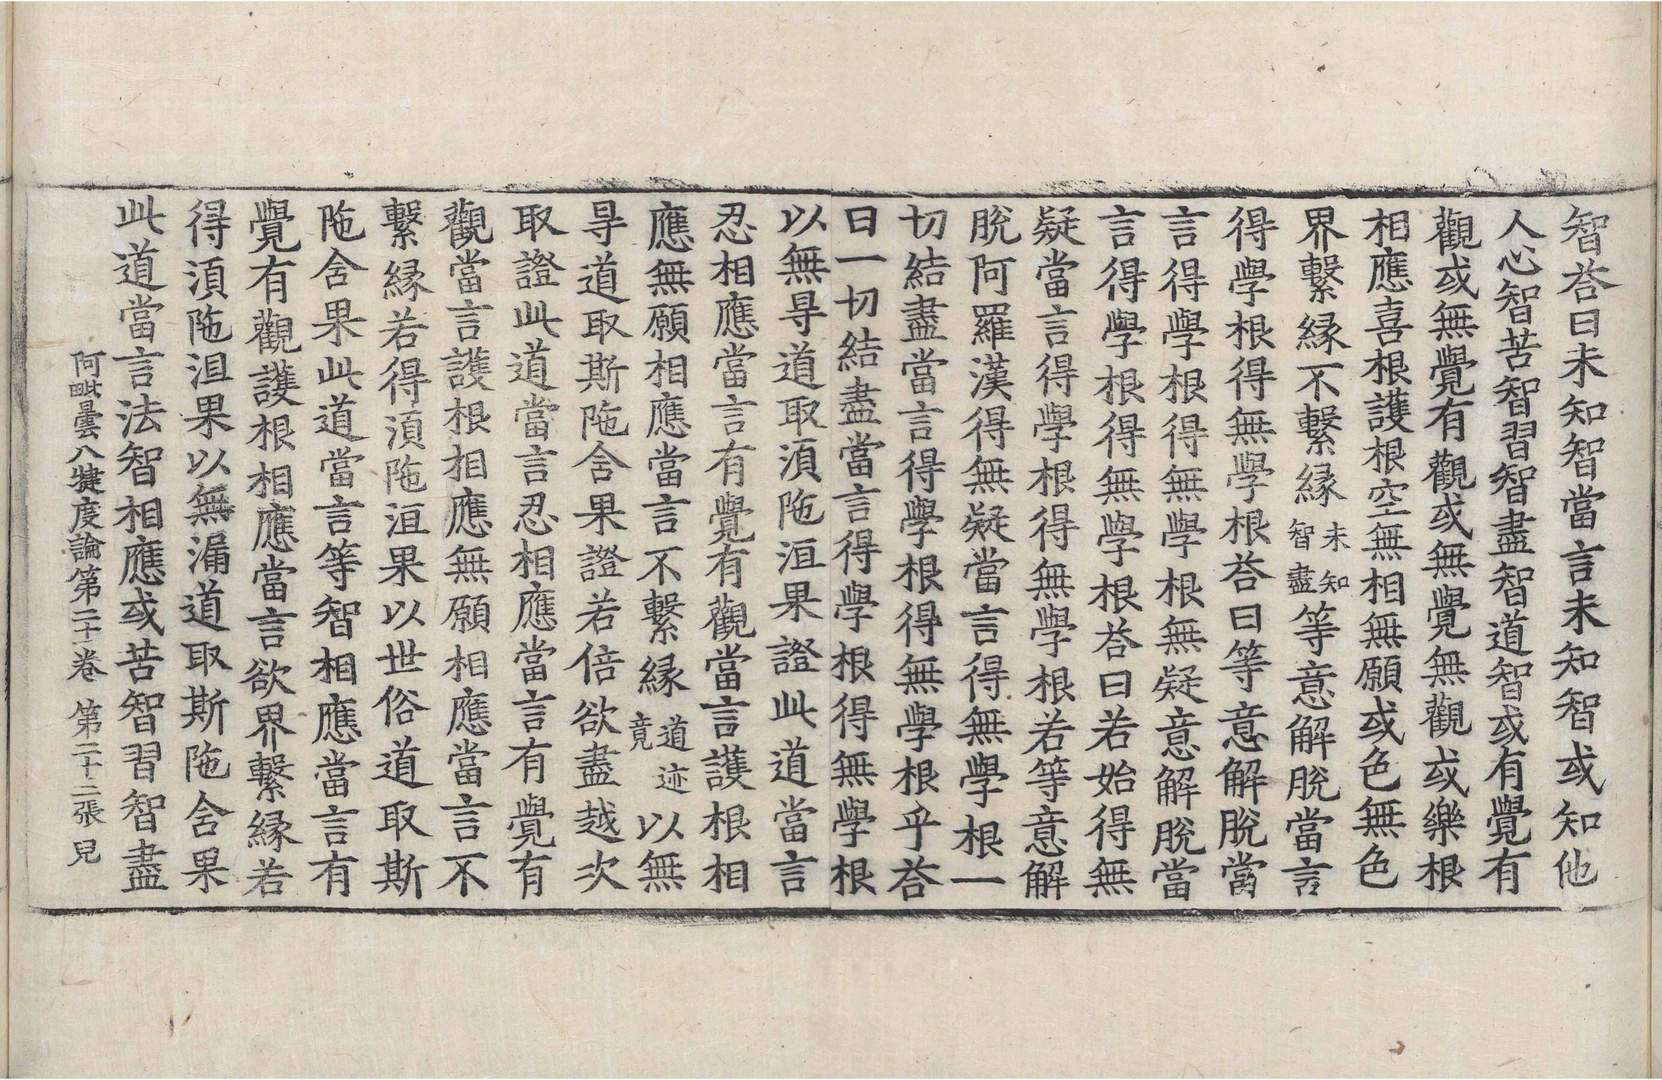 智荅曰未知智當言未知智或知他
人心智苦智習智盡智道智或有覺有
觀或無覺有觀或無覺無觀或樂根
相應喜根護根空無相無願或色無色
界繫緣不繫緣未知智盡等意解脫當言
得學根得無學根荅曰等意解脫當
言得學根得無學根無疑意解脫當
言得學根得無學根荅曰若始得無
疑當言得學根得無學根若等意解
脫阿羅漢得無疑當言得無學根一
切結盡當言得學根得無學根乎荅
曰一切結盡當言得學根得無學根
以無㝵道取湏陁洹果證此道當言
忍相應當言有覺有觀當言護根相
應無願相應當言不繫緣道迹竟以無
㝵道取斯陁舍果證若倍欲盡越次
取證此道當言忍相應當言有覺有
觀當言護根相應無願相應當言不
繫緣若得湏陁洹果以世俗道取斯
陁舍果此道當言等智相應當言有
覺有觀護根相應當言欲界繫緣若
得湏陁洹果以無漏道取斯陁舍果
此道當言法智相應或苦智習智盡
阿毗曇八犍度論第二十卷 第二十二張 皃